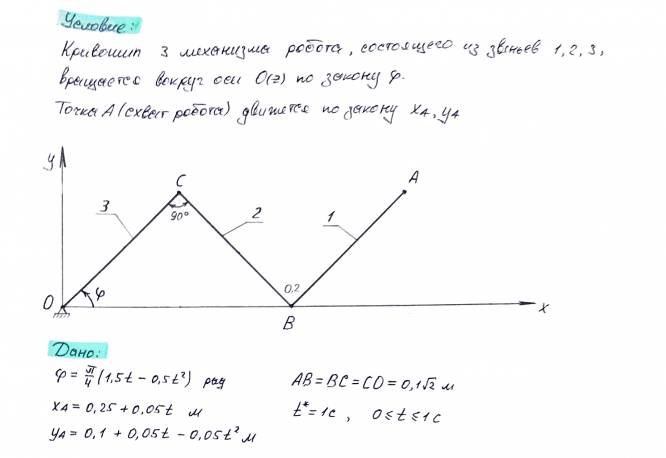 Условие:
Кривошип 3 механизма робота, состоящего из звеньев 1, 2, 3,
вращается вокруг оси O(z) по закону φ.
Точка A (схват робота) движется по закону xA, yA
y
C
A
3
90°
2
1
φ
0,2
O
B
x
Дано:
φ = π/4 (1,5t − 0,5t²) рад
AB = BC = CO = 0,1√2 м
xA = 0,25 + 0,05t м
t* = 1c , 0 ≤ t ≤ 1c
yA = 0,1 + 0,05t − 0,05t² м